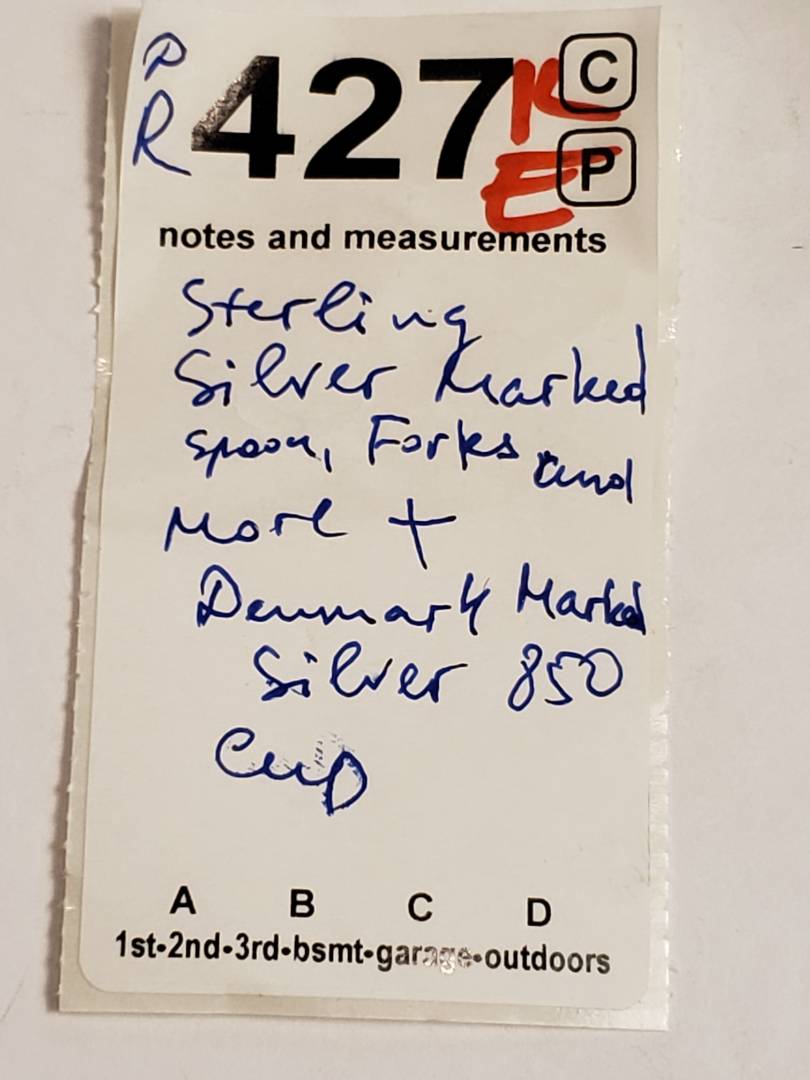 P
R 427 K C
E P
notes and measurements
Sterling
Silver Marked
Spoon, Forks and
More +
Denmark Marked
Silver 850
Cup
A B C D
1st•2nd•3rd•bsmt•garage•outdoors